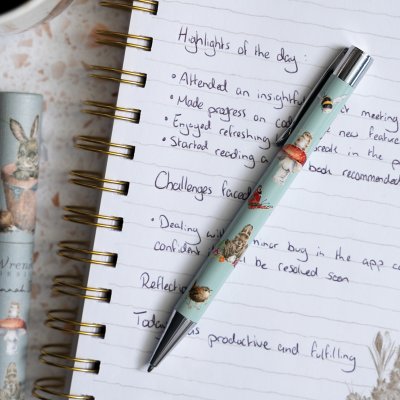 Highlights of the day:
• Attended an insightful meeting
• Made progress on new feature
• Enjoyed refreshing break in the p
• Started reading a book recommended
Challenges faced
• Dealing wi minor bug in the app co
confident l be resolved soon
Reflectio
Today as productive and fulfilling
Wrenn